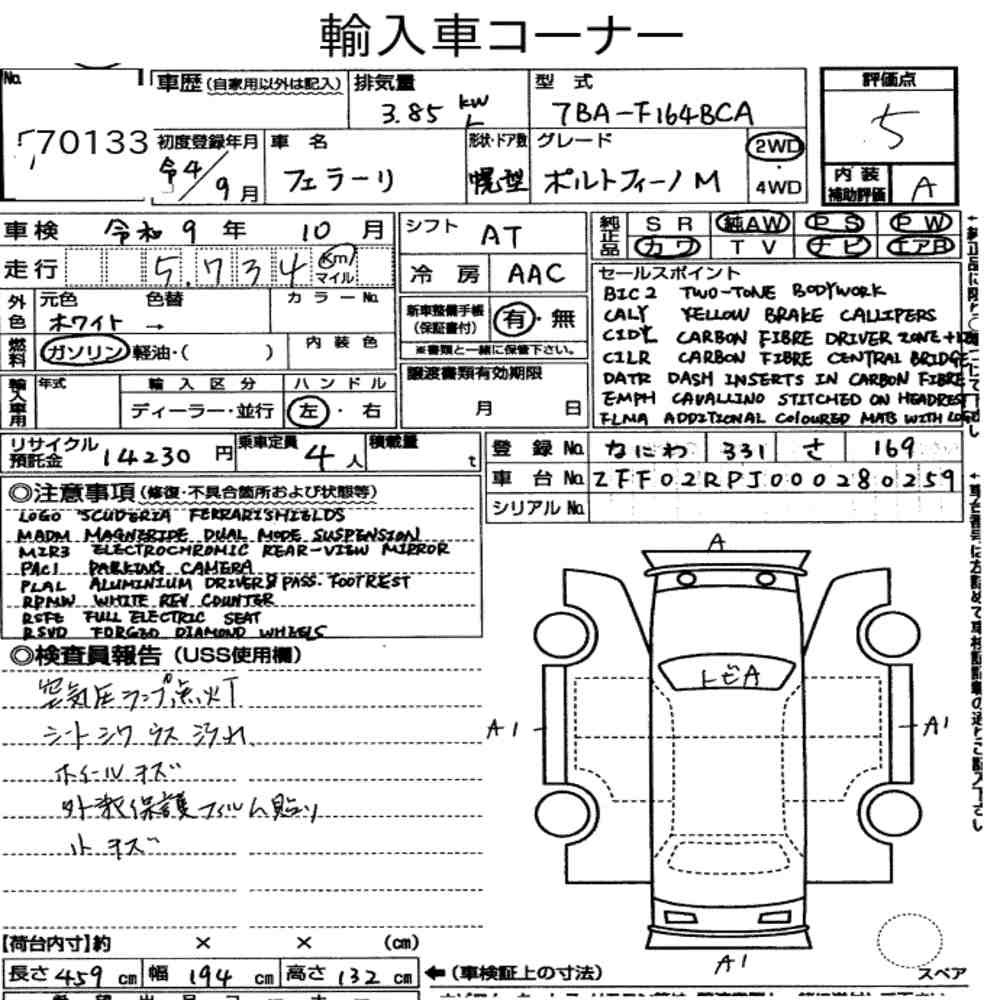 輸入車コーナー
No.
70133
車歴(自家用以外は記入)
排気量
3.85 kw L
型式
7BA-F164BCA
評価点
5
内装補助評価
A
初度登録年月
令4/9月
車名
フェラーリ
形状・ドア数
幌型
グレード
ポルトフィーノM
2WD・4WD
車検 令和9年10月
走行 5,734 km マイル
シフト AT
冷房 AAC
純正品 SR 純AW PS PW
カワ TV ナビ エアB
外色 元色 色替 カラーNo.
ホワイト →
燃料 ガソリン 軽油・( ) 内装色
新車整備手帳(保証書付) 有・無
※書類と一緒に保管下さい。
輸入車用 年式 輸入区分 ハンドル
ディーラー・並行 左・右
譲渡書類有効期限
月 日
セールスポイント
BIC2 TWO-TONE BODYWORK
CALY YELLOW BRAKE CALLIPERS
CIDY CARBON FIBRE DRIVER ZONE+
CILR CARBON FIBRE CENTRAL BRIDGE
DATR DASH INSERTS IN CARBON FIBRE
EMPH CAVALLINO STITCHED ON HEADREST
FLMA ADDITIONAL COLOURED MATS WITH LOGO
リサイクル預託金 14230円
乗車定員 4人
積載量 t
登録No. なにわ 331 さ 169
車台No. ZFF02RPJ000280259
シリアルNo.
◎注意事項(修復・不具合箇所および状態等)
LOGO SCUDERIA FERRARI SHIELDS
MADM MAGNERIDE DUAL MODE SUSPENSION
MIR3 ELECTROCHROMIC REAR-VIEW MIRROR
PAC1 PARKING CAMERA
PLAL ALUMINIUM DRIVER & PASS. FOOTREST
RPMW WHITE REV COUNTER
RSFE FULL ELECTRIC SEAT
RSVD FORGED DIAMOND WHEELS
◎検査員報告(USS使用欄)
空気圧ランプ点灯
シートシワ ウス汚れ
ホイールキズ
外装保護フィルム貼り
小キズ
A
トビA
A1
A1
A1
スペア
【荷台内寸】約 × × (cm)
長さ459cm 幅194cm 高さ132cm
←(車検証上の寸法)